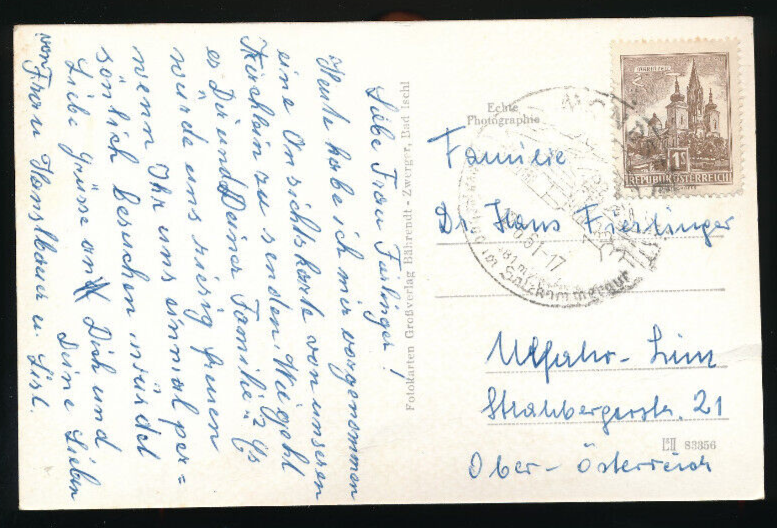 Liebe Frau
Heute habe ich mir vorgenommen
eine Ansichtskarte von unseren
Kirchlein zu senden. Wie geht
es Dir und Deiner Familie? Es
würde uns riesig freuen
wenn Ihr uns einmal per=
sönlich besuchen würdet
Liebe Grüße an Dich und
Deine Lieben
von Frau u. Lisl.
Fotokarten Großverlag Bährendt - Zwerger, Bad Ischl
Echte
Photographie
MARIAZELL
1S
REPUBLIK ÖSTERREICH
61-17
Salzkammergut
Familie
Dr. Hans
Urfahr - Linz
21
LII 83356
Ober - Österreich